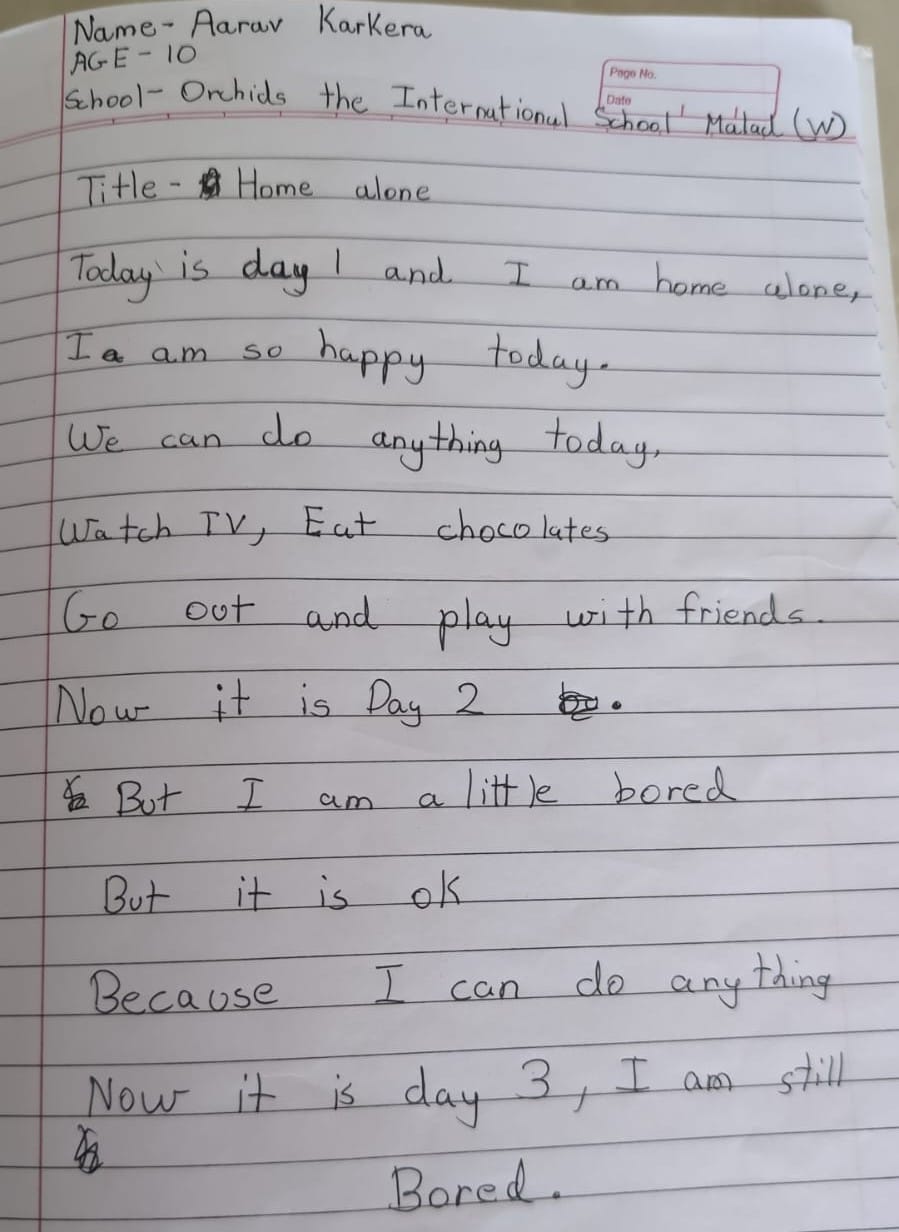 Name- Aarav Karkera
AGE - 10
Page No.
Date
School- Orchids the International School Malad (W)
Title - Home alone
Today is day 1 and I am home alone,
I a am so happy today.
We can do anything today,
Watch TV, Eat chocolates
Go out and play with friends.
Now it is Day 2 .
But I am a little bored
But it is ok
Because I can do anything
Now it is day 3, I am still
Bored.